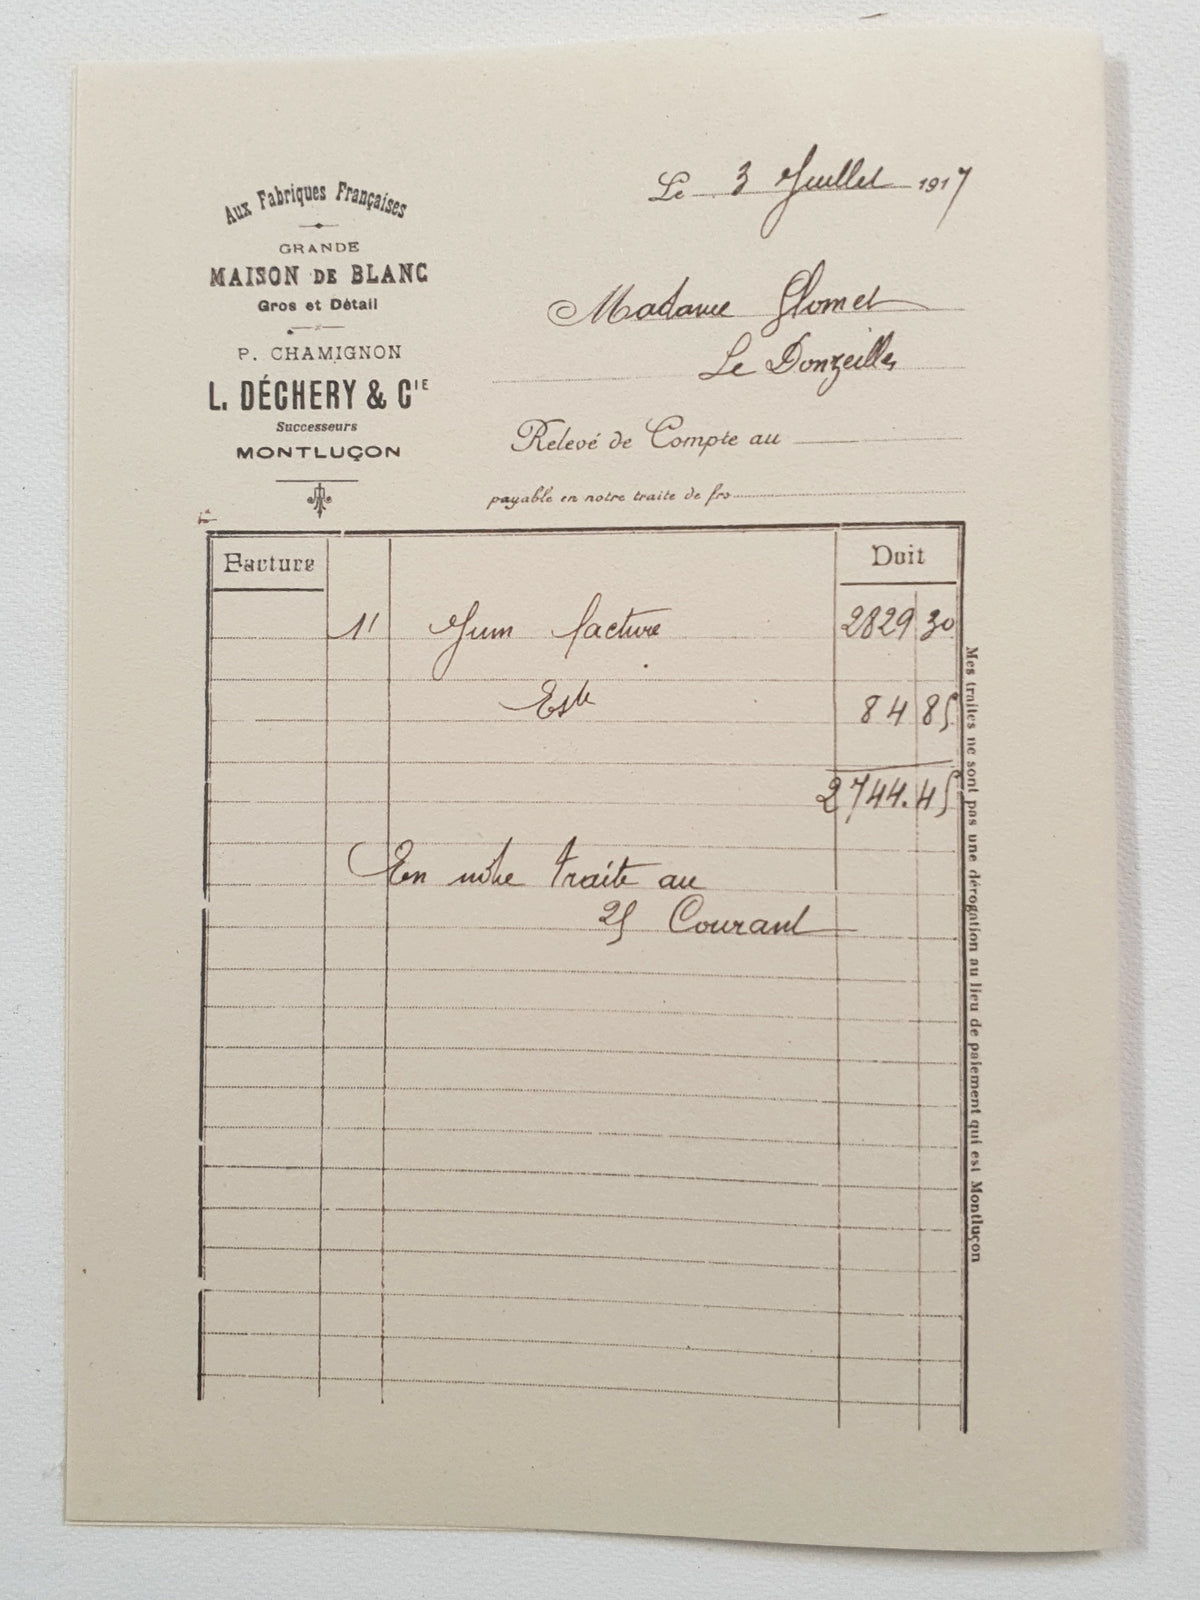 Aux Fabriques Françaises
GRANDE
MAISON DE BLANC
Gros et Détail
P. CHAMIGNON
L. DÉCHERY & CIE
Successeurs
MONTLUÇON
Le 3 Juillet 1917
Madame Glomet
Le Donzeilles
Relevé de Compte au
payable en notre traite de frs
Facture Doit
11 Juin facture 2829 30
Este 84 85
2744.45
En nôtre traite au
25 Courant
Mes traites ne sont pas une dérogation au lieu de paiement qui est Montluçon